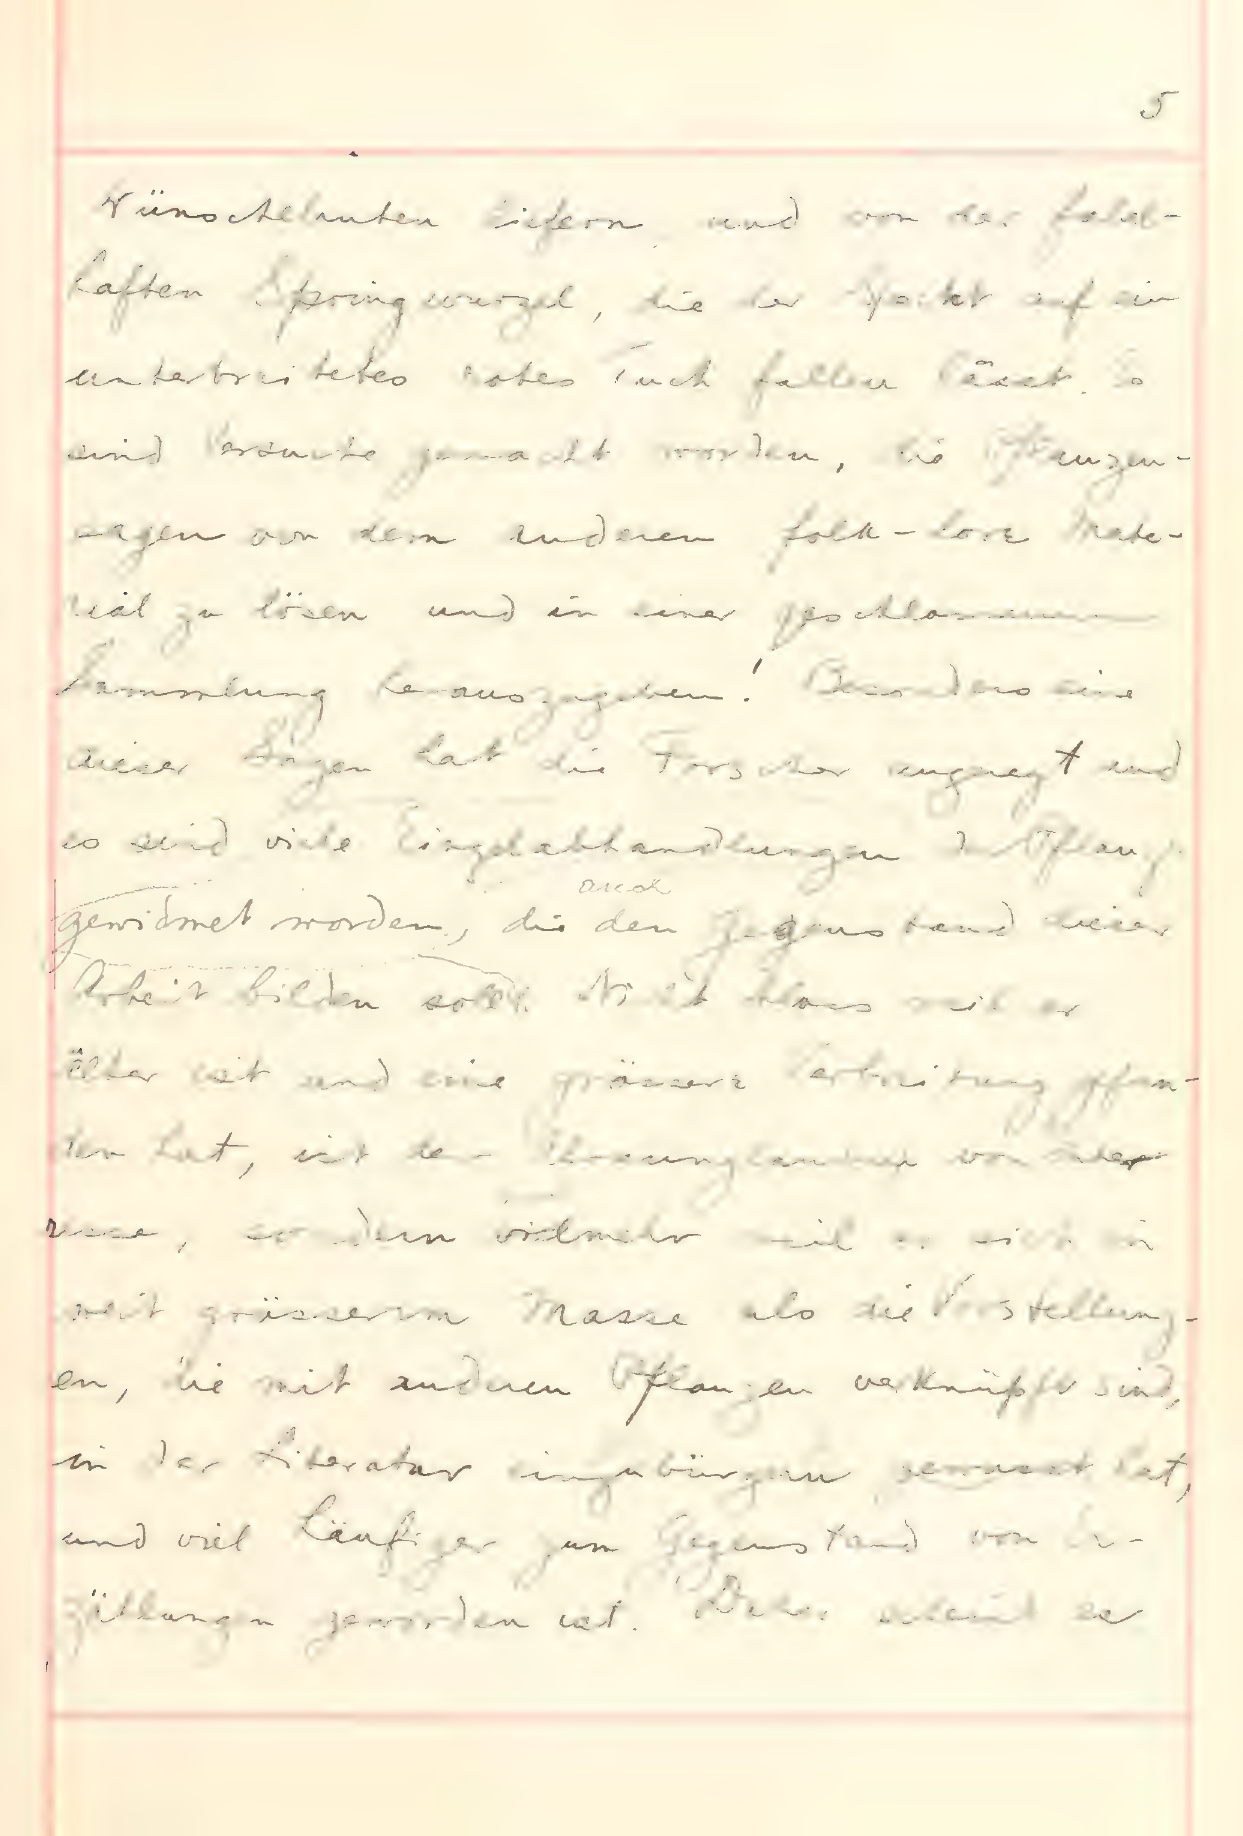 5
Wünschelruten liefern und von der fabel-
haften Springwurzel, die der Specht auf ein
unterbreitetes rotes Tuch fallen lässt. So
sind Versuche gemacht worden, die Pflanzen-
sagen von dem anderen folk-lore Mate-
rial zu lösen und in einer geschlossenen
Sammlung herauszugeben! Besonders eine
dieser Sagen hat die Forscher angeregt und
es sind viele Einzelabhandlungen der Pflanze
auch
gewidmet worden, die den Gegenstand dieser
Arbeit bilden soll. Nicht bloss weil er
älter ist und eine grössere Verbreitung gefun-
den hat, ist der von
sondern vielmehr weil er sich in
weit grösserem Masse als die Vorstellung-
en, die mit anderen Pflanzen verknüpft sind,
in der Literatur einzubürgern gewusst hat,
und viel häufiger zum Gegenstand von Er-
zählungen geworden ist. Daher scheint es